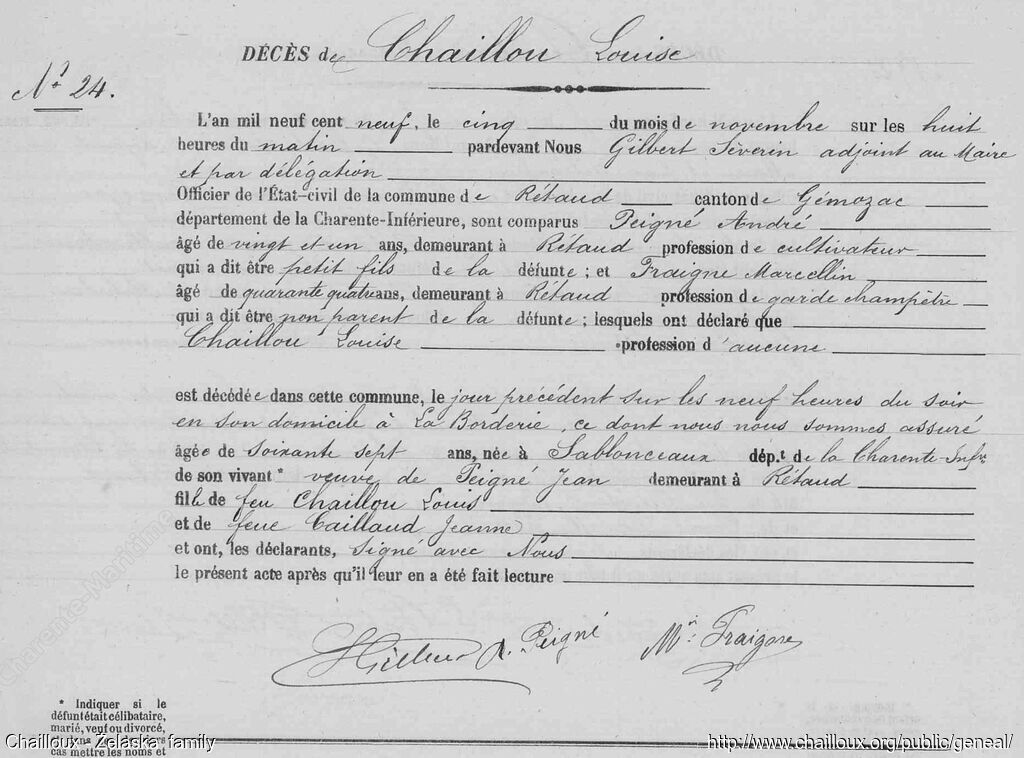 DÉCÈS de Chaillou Louise
No 24.
L'an mil neuf cent neuf, le cinq du mois de novembre sur les huit
heures du matin pardevant Nous Gilbert Séverin adjoint au Maire
et par délégation
Officier de l'État-civil de la commune de Rétaud canton de Gémozac
département de la Charente-Inférieure, sont comparus Peigné André
âgé de vingt et un ans, demeurant à Rétaud profession de cultivateur
qui a dit être petit fils de la défunte ; et Fraigne Marcellin
âgé de quarante quatre ans, demeurant à Rétaud profession de garde champêtre
qui a dit être non parent de la défunte ; lesquels ont déclaré que
Chaillou Louise profession d'aucune
est décédée dans cette commune, le jour précédent sur les neuf heures du soir
en son domicile à La Borderie, ce dont nous nous sommes assuré
âgée de soixante sept ans, née à Sablonceaux dép.t de la Charente-Infre
de son vivant * veuve de Peigné Jean demeurant à Rétaud
fille de feu Chaillou Louis
et de feue Caillaud Jeanne
et ont, les déclarants, signé avec Nous
le présent acte après qu'il leur en a été fait lecture
A. Peigné Min Fraigne
Charente-Maritime
* Indiquer si le
défunt était célibataire,
marié, veuf ou divorcé,
cas mettre les noms et
Chailloux - Zelaska family
http://www.chailloux.org/public/geneal/